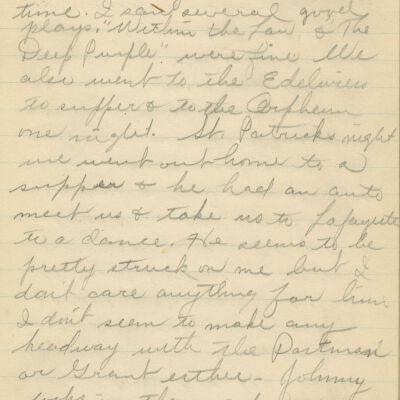 time. I saw several good
plays. "Within the Law & The
Deep Purple" were fine We
also went to the Edelwies
to supper & to the Orpheum
one night. St. Patricks night
we went out home to a
supper & he had an auto
meet us & take us to Lafayette
to a dance. He seems to be
pretty struck on me but I
don't care anything for him.
I don't seem to make any
headway with the Portman
or Grant either - Johnny